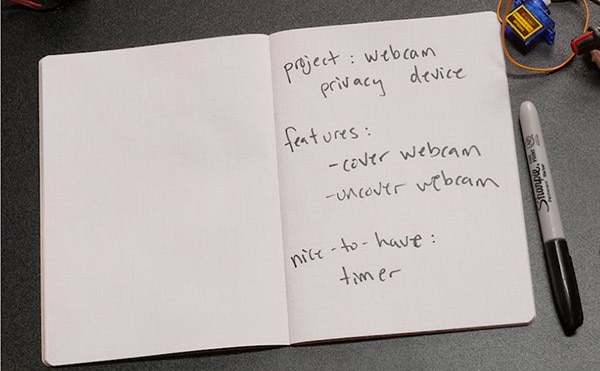 project : webcam
privacy device
features :
- cover webcam
- uncover webcam
nice-to-have :
timer
Sharpie